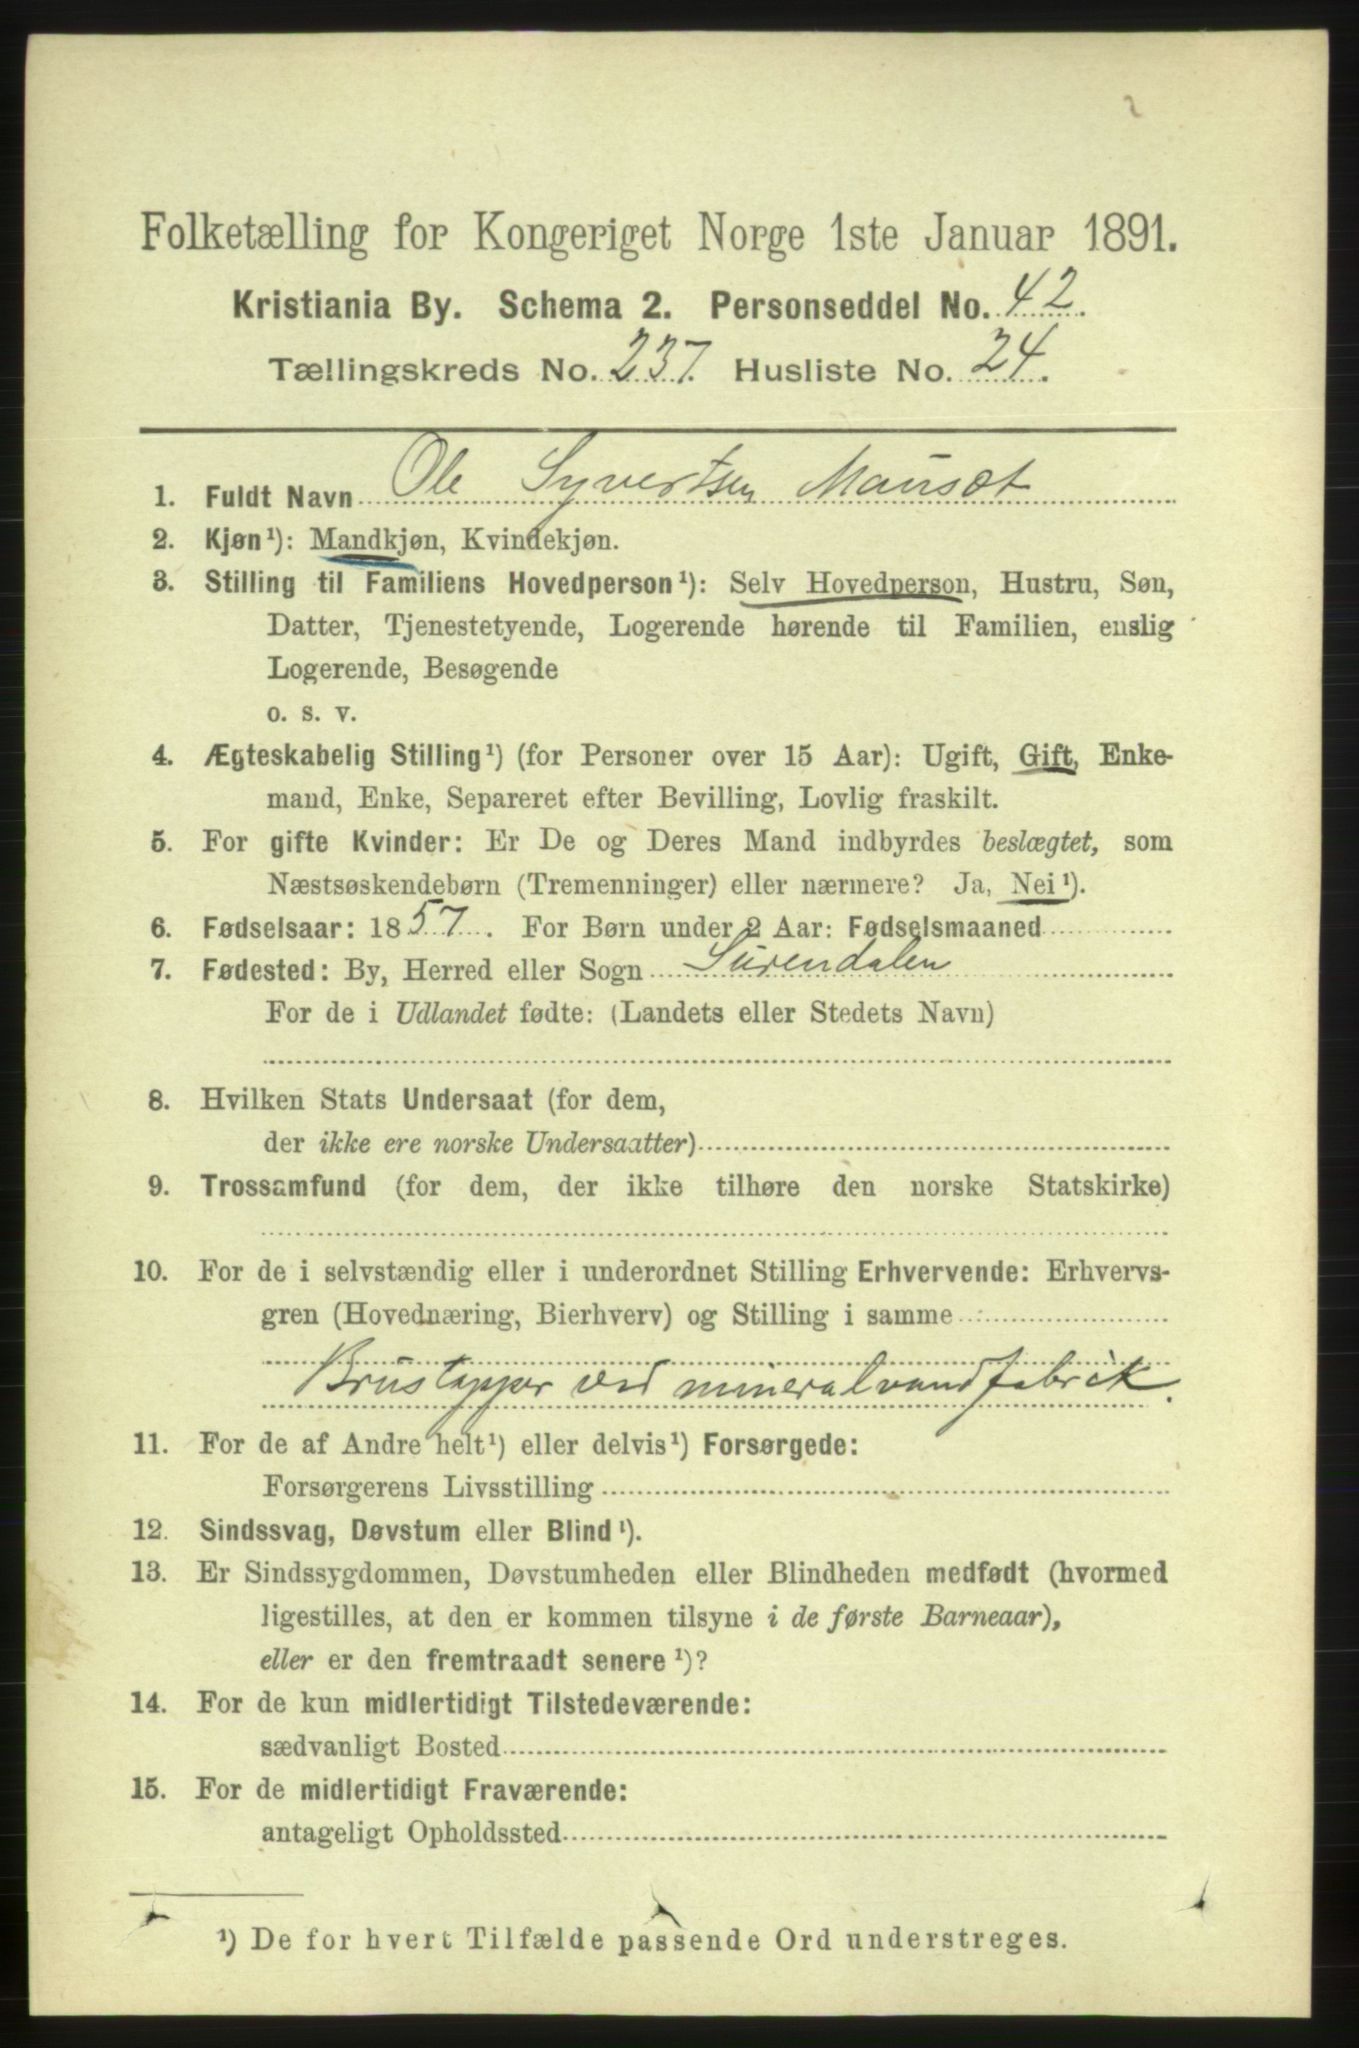 Folketælling for Kongeriget Norge 1ste Januar 1891.
Kristiania By. Schema 2. Personseddel No. 42.
Tællingskreds No. 237. Husliste No. 24.
1. Fuldt Navn Ole Syvertsen Mauset
2. Kjøn¹): Mandkjøn, Kvindekjøn.
3. Stilling til Familiens Hovedperson¹): Selv Hovedperson, Hustru, Søn,
Datter, Tjenestetyende, Logerende hørende til Familien, enslig
Logerende, Besøgende
o. s. v.
4. Ægteskabelig Stilling¹) (for Personer over 15 Aar): Ugift, Gift, Enke-
mand, Enke, Separeret efter Bevilling, Lovlig fraskilt.
5. For gifte Kvinder: Er De og Deres Mand indbyrdes beslægtet, som
Næstsøskendebørn (Tremenninger) eller nærmere? Ja, Nei¹).
6. Fødselsaar: 1857. For Børn under 2 Aar: Fødselsmaaned
7. Fødested: By, Herred eller Sogn Surendalen
For de i Udlandet fødte: (Landets eller Stedets Navn)
8. Hvilken Stats Undersaat (for dem,
der ikke ere norske Undersaatter)
9. Trossamfund (for dem, der ikke tilhøre den norske Statskirke)
10. For de i selvstændig eller i underordnet Stilling Erhvervende: Erhvervs-
gren (Hovednæring, Bierhverv) og Stilling i samme
Brustapper ved mineralvandfabrik.
11. For de af Andre helt¹) eller delvis¹) Forsørgede:
Forsørgerens Livsstilling
12. Sindssvag, Døvstum eller Blind¹).
13. Er Sindssygdommen, Døvstumheden eller Blindheden medfødt (hvormed
ligestilles, at den er kommen tilsyne i de første Barneaar),
eller er den fremtraadt senere¹)?
14. For de kun midlertidigt Tilstedeværende:
sædvanligt Bosted
15. For de midlertidigt Fraværende:
antageligt Opholdssted
¹) De for hvert Tilfælde passende Ord understreges.